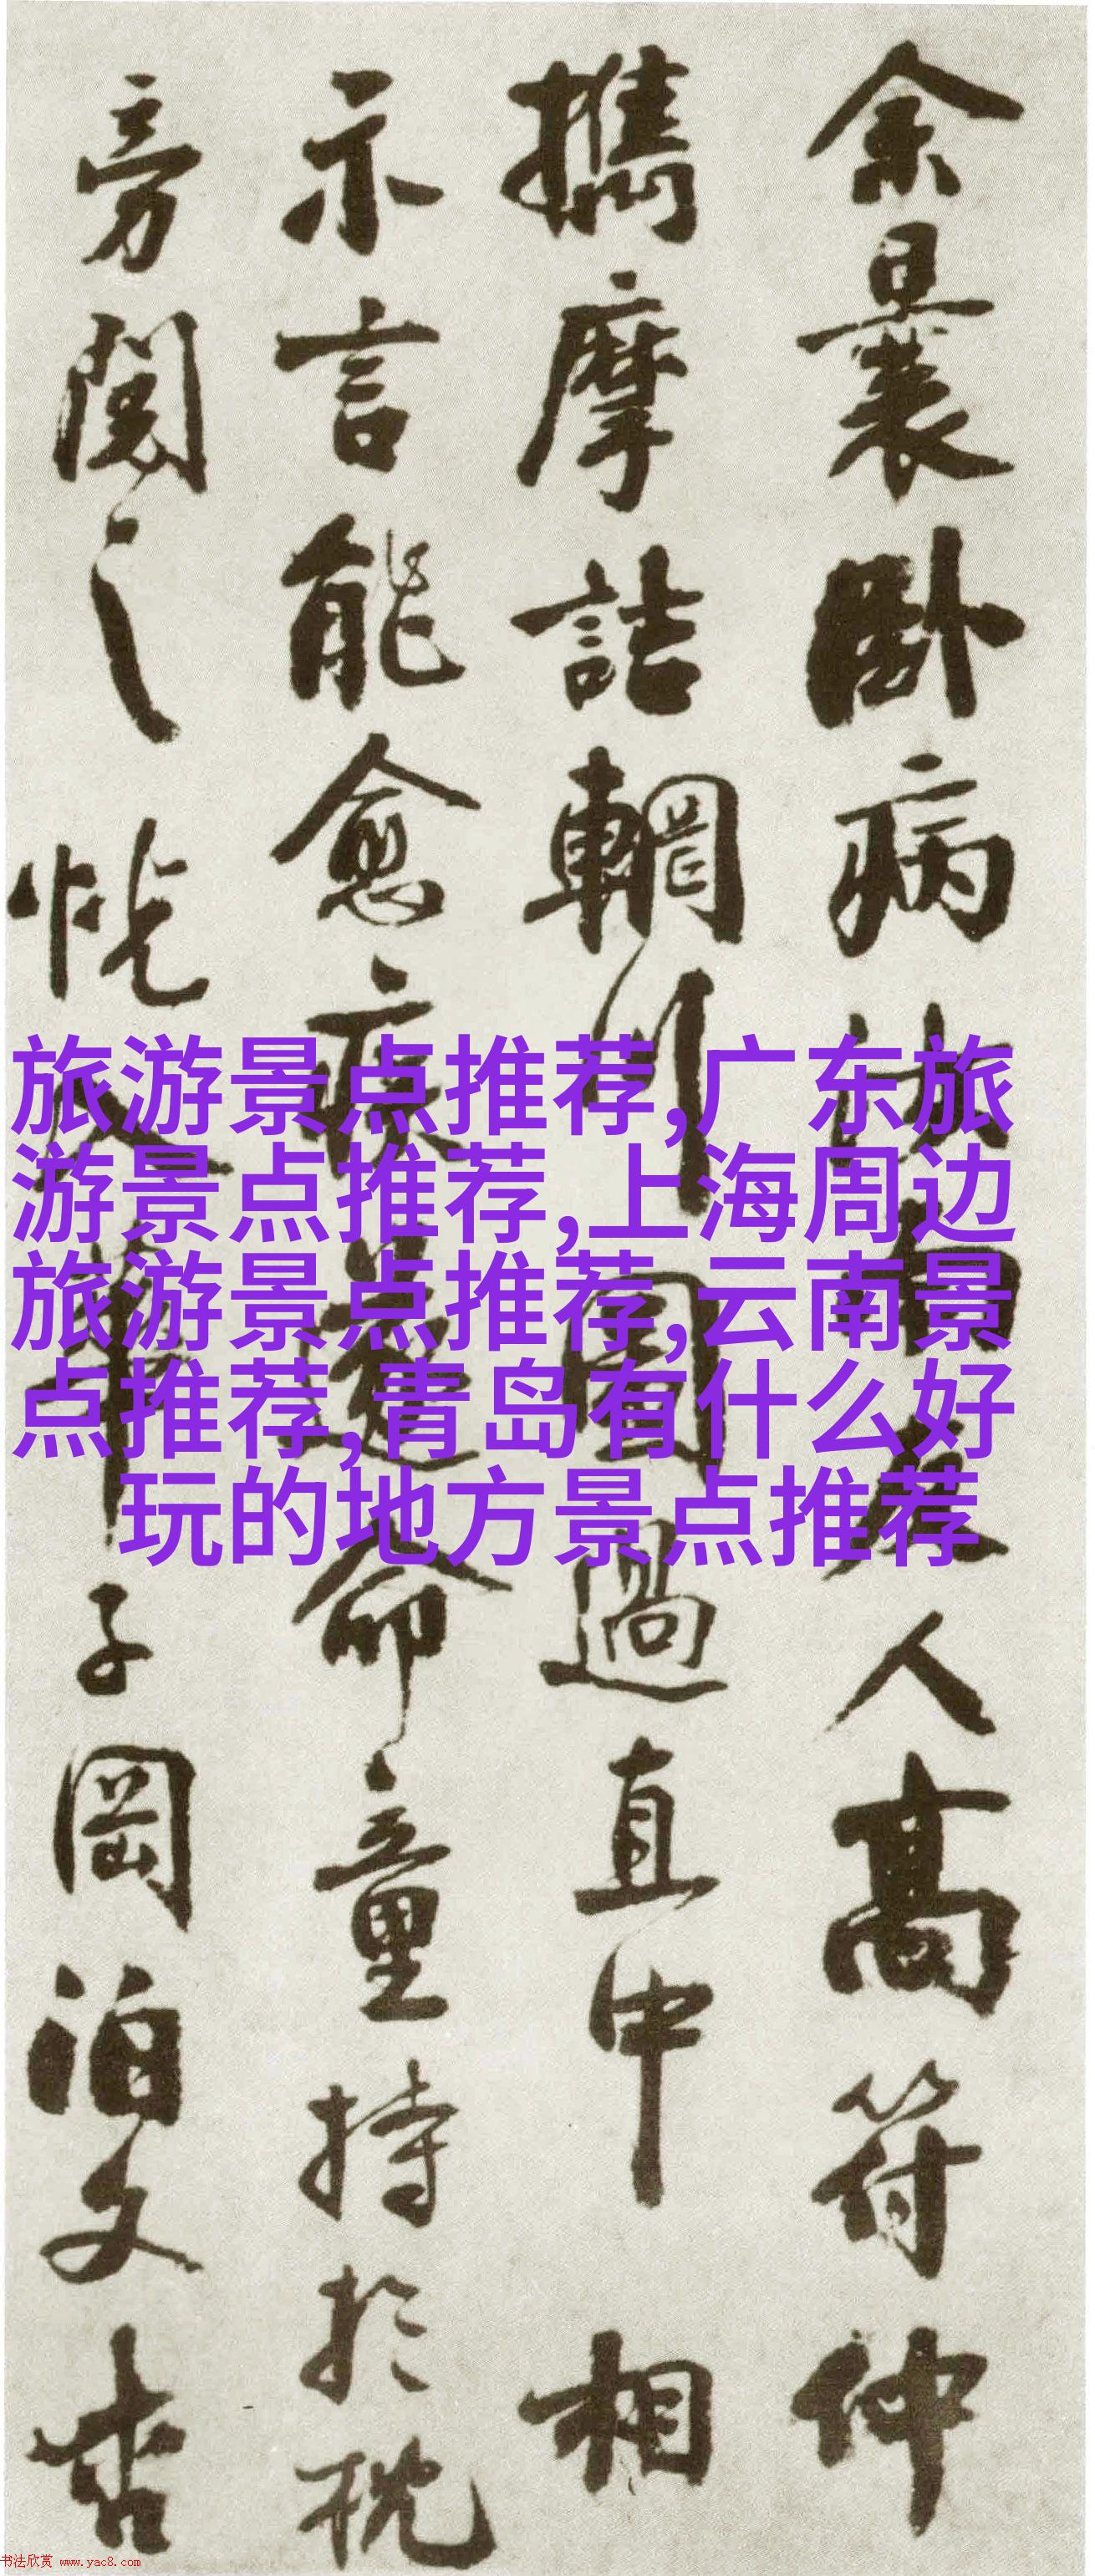 余曩卧病
人高符仲
攜摩詰輞川
圖過直中相
示言能愈疾
命童持於枕
旁閱之恍
子岡泊文
旅游景点推荐,广东旅
游景点推荐,上海周边
旅游景点推荐,云南景
点推荐,青岛有什么好
玩的地方景点推荐
书法欣赏 www.yac8.com